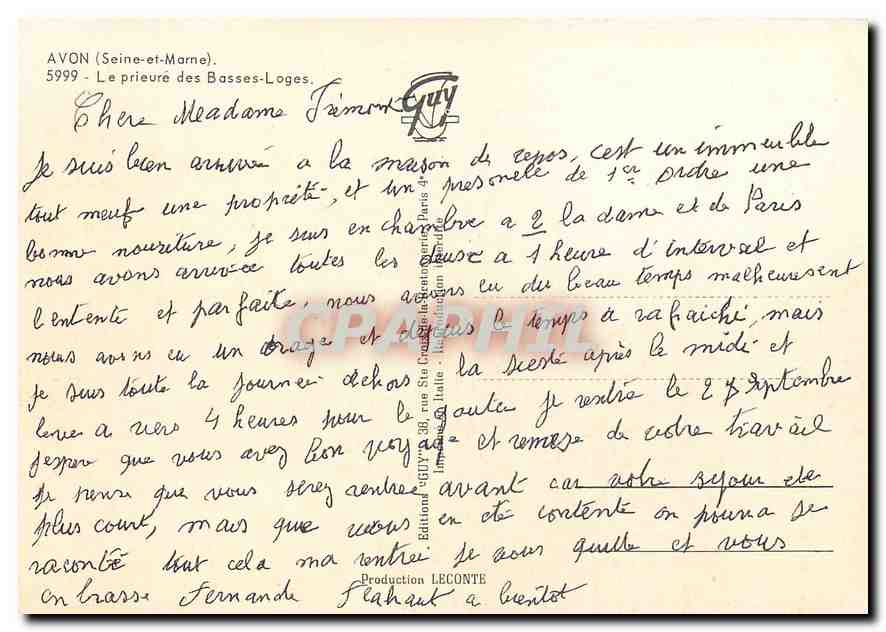 AVON (Seine-et-Marne).
5999 - Le prieuré des Basses-Loges.
Guy
Chere Meadame Trémont
Je suis bien arrivée a la maison de repos, c'est un immeuble
tout neuf une propriété, et un presonele de 1er ordre une
bonne nouriture, je suis en chambre a 2 la dame et de Paris
nous avons arrivée toutes les deuse a 1 heure d'interval et
l'entente et parfaite, nous avons eu du beau temps malheuresent
nous avons eu un orage et depuis le temps a rafraichi, mais
je suis toute la journeé dehors la siesté après le midi et
levé a vers 4 heures pour le gouter je rentré le 27 Septembre
J'espere que vous avez bon voyage et remise de votre travail
Je pense que vous serez rentrée avant car votre sejour ete
plus court, mais que vous en été contente on poura se
raconté tout cela ma rentrée je vous quitte et vous
embrasse Fernande Flahaut a bientot
Editions "GUY" 38, rue Ste Croix-de-la-Bretonnerie, Paris 4e
Imprimé en Italie - Reproduction interdite
Production LECONTE
CPAPHIL